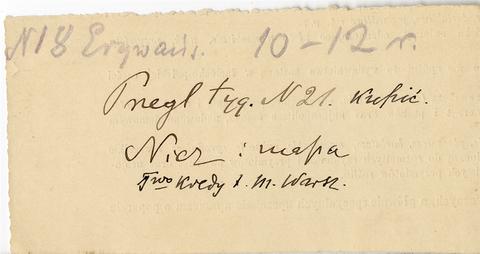 N 18 Erywańs. 10-12 r.
Przegl tyg. N 21. kupić.
Nicz : mapa
Two Kredy t. m. Warsz.